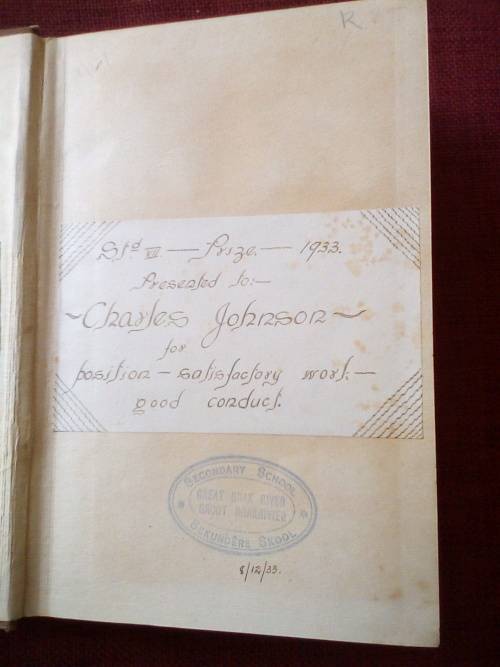 R
Std VII. — Prize. — 1933.
Presented to:—
~ Charles Johnson ~
for
position — satisfactory work. —
good conduct.
SECONDARY SCHOOL
GREAT BRAK RIVER
GROOT BRAKRIVIER
SEKUNDÊRE SKOOL
8/12/33.